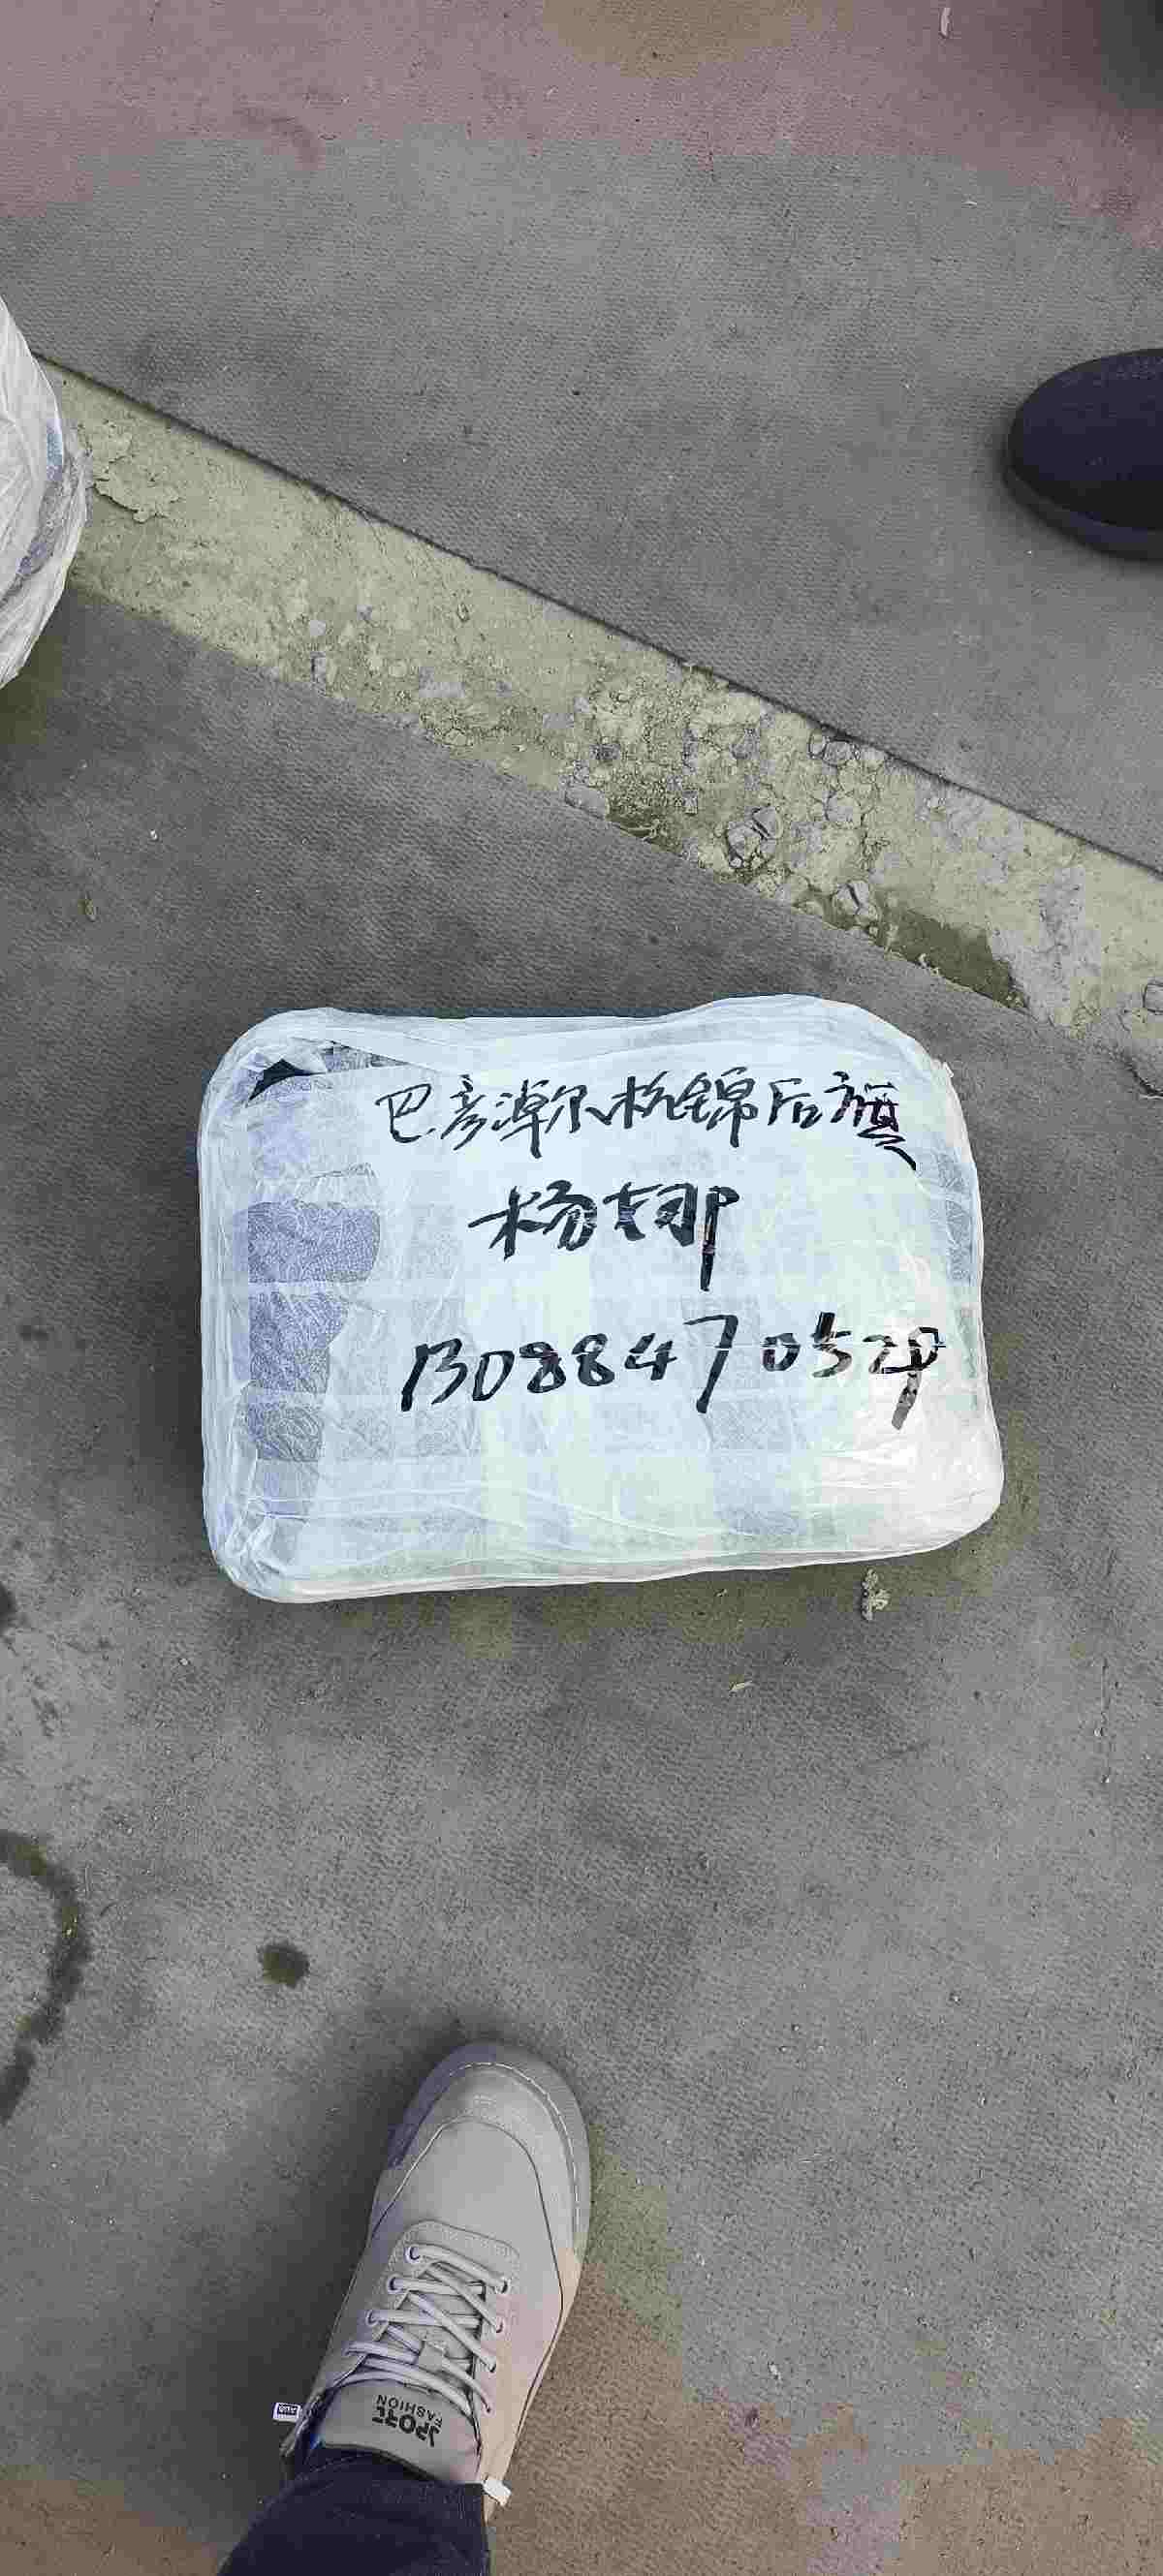 巴彦淖尔杭锦后旗
杨娜
13088470529
SPORT
FASHION